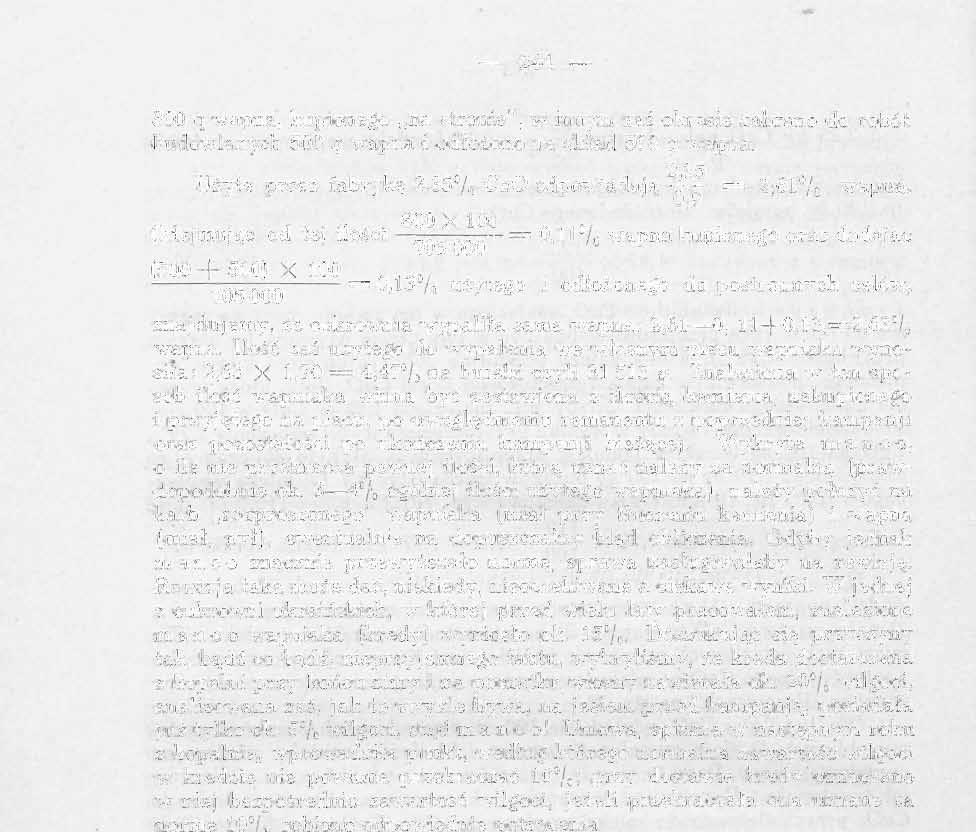 800 q wapna, kupionego „na stronie”, w innym zaś okresie zabrano do robót
budowlanych 300 q wapna i odłożono na skład 500 q wapna.
Użyte przez fabrykę 2,35% CaO odpowiadają 2,35 / 0,9 = 2,61% wapna.
Odejmując od tej ilości 800 × 100 / 705 000 = 0,11% wapna kupionego oraz dodając
(300 + 500) × 100 / 705 000 = 0,13% użytego i odłożonego do postronnych celów,
znajdujemy, że cukrownia wypaliła sama wapna: 2,61—0,11+0,13=2,63%
wapna. Ilość zaś użytego do wypalania we własnym piecu wapniaka wyno-
siła: 2,63 × 1,70 = 4,47% na buraki czyli 31 513 q. Znaleziona w ten spo-
sób ilość wapniaka winna być zestawiona z ilością kamienia, zakupionego
i przyjętego na placu, po uwzględnieniu remanentu z poprzedniej kampanji
oraz pozostałości po ukończeniu kampanji bieżącej. Wykryte manco,
o ile nie przekracza pewnej ilości, którą uznać należy za normalną (praw-
dopodobnie ok. 3—4% ogólnej ilości użytego wapniaka), należy położyć na
karb „rozproszonego” wapniaka (miał przy tłuczeniu kamienia) i wapna
(miał, pył), ewentualnie na dopuszczalny błąd obliczenia. Gdyby jednak
manco znacznie przewyższało normę, sprawa zasługiwałaby na rewizję.
Rewizja taka może dać, niekiedy, nieoczekiwane a ciekawe wyniki. W jednej
z cukrowni ukraińskich, w której przed wielu laty pracowałem, znalezione
manco wapniaka (kredy) wyniosło ok. 15%. Doszukując się przyczyny
tak, bądź co bądź, nieprzyjemnego faktu, wykryliśmy, że kreda dostarczona
z kopalni przy końcu zimy i na początku wiosny zawierała ok. 20% wilgoci,
analizowana zaś, jak to zwykle bywa, na jesieni, przed kampanją, posiadała
już tylko ok. 5% wilgoci, stąd manco! Umowa, spisana w następnym roku
z kopalnią, wprowadziła punkt, według którego normalna zawartość wilgoci
w kredzie nie powinna przekraczać 10%; przy dostawie kredy
w niej bezpośrednio zawartość wilgoci, jeżeli przekraczała ona uznane za
normę 10%, robiono odpowiednie potrącenia.